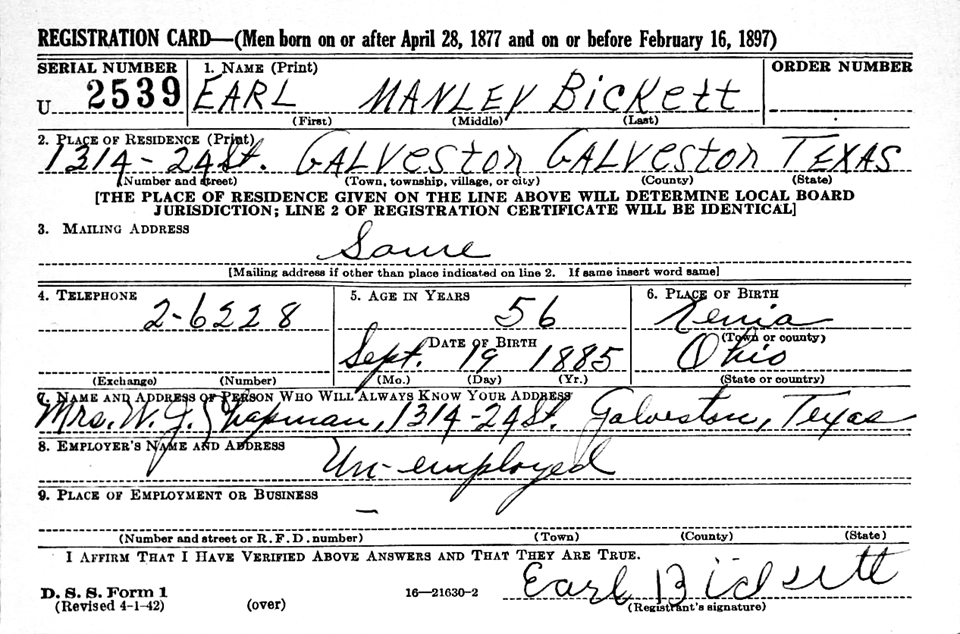 REGISTRATION CARD—(Men born on or after April 28, 1877 and on or before February 16, 1897)
SERIAL NUMBER 1. NAME (Print) ORDER NUMBER
U 2539 EARL MANLEY BICKETT
(First) (Middle) (Last)
2. PLACE OF RESIDENCE (Print)
1314-24 St. GALVESTON GALVESTON TEXAS
(Number and street) (Town, township, village, or city) (County) (State)
[THE PLACE OF RESIDENCE GIVEN ON THE LINE ABOVE WILL DETERMINE LOCAL BOARD
JURISDICTION; LINE 2 OF REGISTRATION CERTIFICATE WILL BE IDENTICAL]
3. MAILING ADDRESS
Same
[Mailing address if other than place indicated on line 2. If same insert word same]
4. TELEPHONE 5. AGE IN YEARS 6. PLACE OF BIRTH
2-6228 56 Xenia
DATE OF BIRTH (Town or county)
Sept. 19 1885 Ohio
(Exchange) (Number) (Mo.) (Day) (Yr.) (State or country)
7. NAME AND ADDRESS OF PERSON WHO WILL ALWAYS KNOW YOUR ADDRESS
Mrs. W. J. Chapman, 1314-24 St. Galveston, Texas
8. EMPLOYER'S NAME AND ADDRESS
Un-employed
9. PLACE OF EMPLOYMENT OR BUSINESS
—
(Number and street or R. F. D. number) (Town) (County) (State)
I AFFIRM THAT I HAVE VERIFIED ABOVE ANSWERS AND THAT THEY ARE TRUE.
Earl Bickett
D. S. S. Form 1 16—21630-2
(Revised 4-1-42) (over) (Registrant's signature)